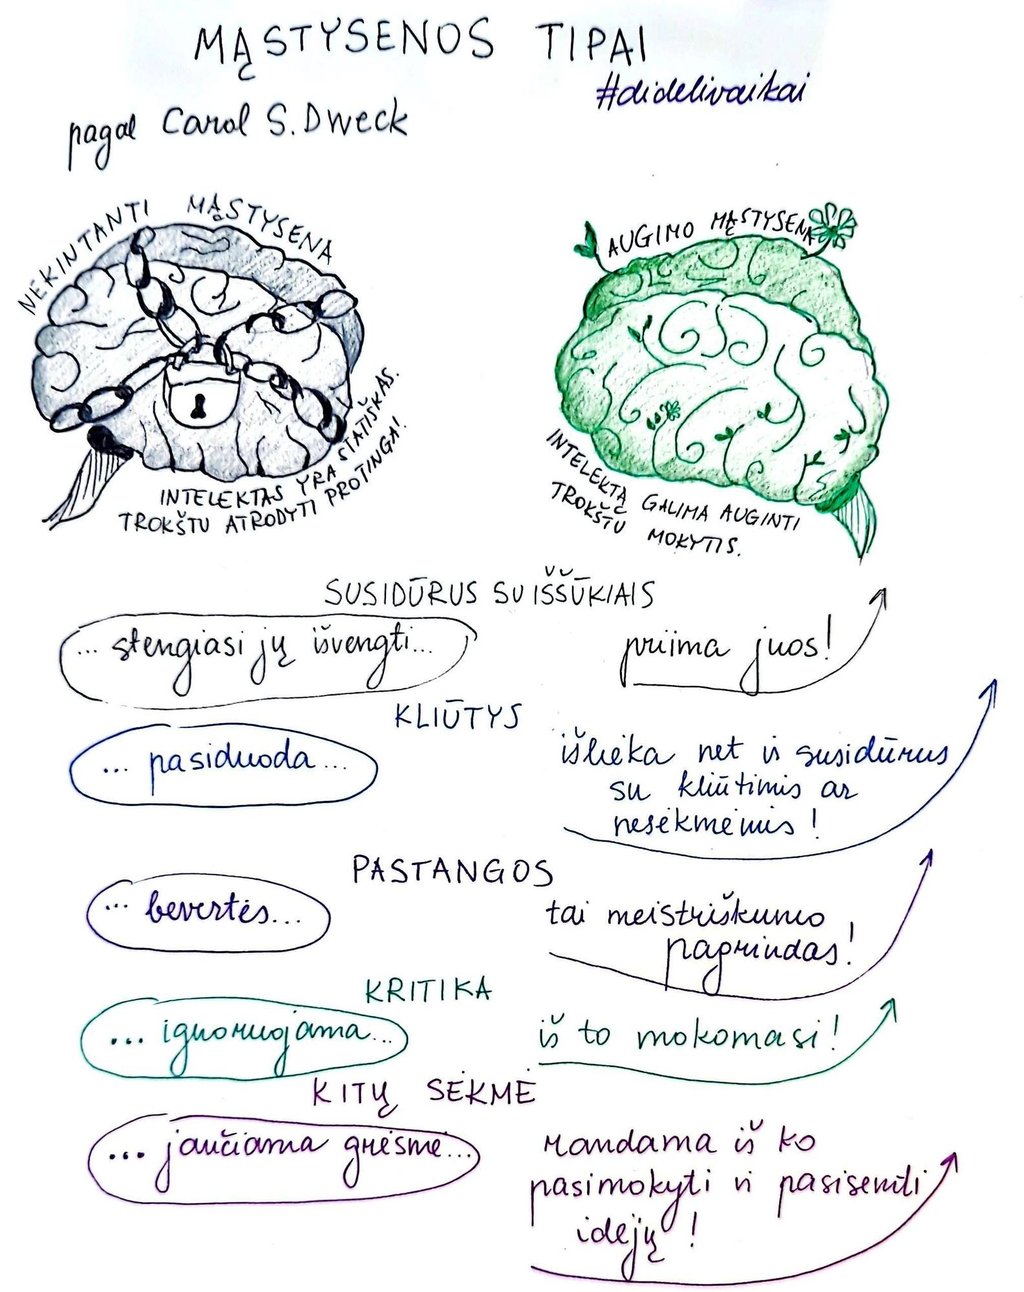 MĄSTYSENOS TIPAI
#didelivaikai
pagal Carol S. Dweck
NEKINTANTI MĄSTYSENA
INTELEKTAS YRA STATIŠKAS.
TROKŠTU ATRODYTI PROTINGA!
AUGIMO MĄSTYSENA
INTELEKTĄ GALIMA AUGINTI
TROKŠTU MOKYTIS.
SUSIDŪRUS SU IŠŠŪKIAIS
... stengiasi jų išvengti...
priima juos!
KLIŪTYS
... pasiduoda...
išlieka net ir susidūrus
su kliūtimis ar
nesėkmėmis!
PASTANGOS
... bevertės...
tai meistriškumo
pagrindas!
KRITIKA
... ignoruojama...
iš to mokomasi!
KITŲ SĖKMĖ
... jaučiama grėsmė...
randama iš ko
pasimokyti ir pasisemti
idėjų!